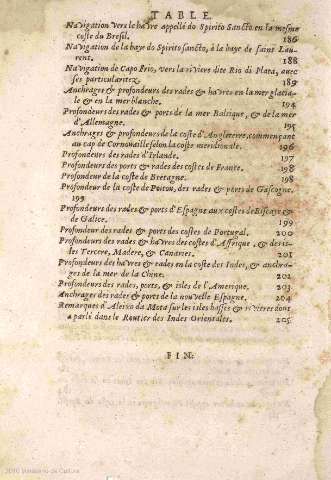 TABLE.
Navigation vers le havre appellé do Spirito Sancto en la mesme
coste du Bresil. 186
Navigation de la baye do Spirito sancto, à la baye de saint Lau-
rent. 188
Navigation de Capo Frio, vers la riviere dite Rio di Plata, avec
ses particularitez. 189
Anchrages & profondeurs des rades & havres en la mer glacia-
le & en la mer blanche. 194
Profondeurs des rades & ports de la mer Baltique, & de la mer
d'Allemagne. 195
Anchrages & profondeurs de la coste d'Angleterre, commençant
au cap de Cornovaille selon la coste meridionale. 196
Profondeurs des rades d'Irlande. 197
Profondeurs des ports & rades des costes de France. 198
Profondeur de la coste de Bretagne. 198
Profondeur de la coste de Poitou, des rades & ports de Gascogne.
199
Profondeurs des rades & ports d'Espagne aux costes de Biscaye &
de Galice. 199
Profondeur des rades & ports des costes de Portugal. 200
Profondeurs des rades & havres des costes d'Affrique, & des is-
les Tercere, Madere, & Canaries. 201
Profondeurs des havres & rades en la coste des Indes, & anchra-
ges de la mer de la Chine. 202
Profondeurs des rades, ports, & isles de l'Amerique. 203
Anchrages des rades & ports de la nouvelle Espagne. 204
Remarques d'Aleixo da Mota sur les isles basses & rivieres dont
a parlé dans le Routier des Indes Orientales. 205
FIN.
2010 Ministerio de Cultura